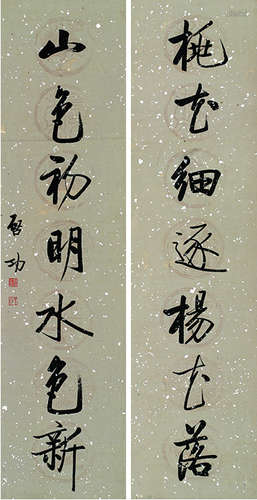 桃花細逐楊花落
山色初明水色新
啓功